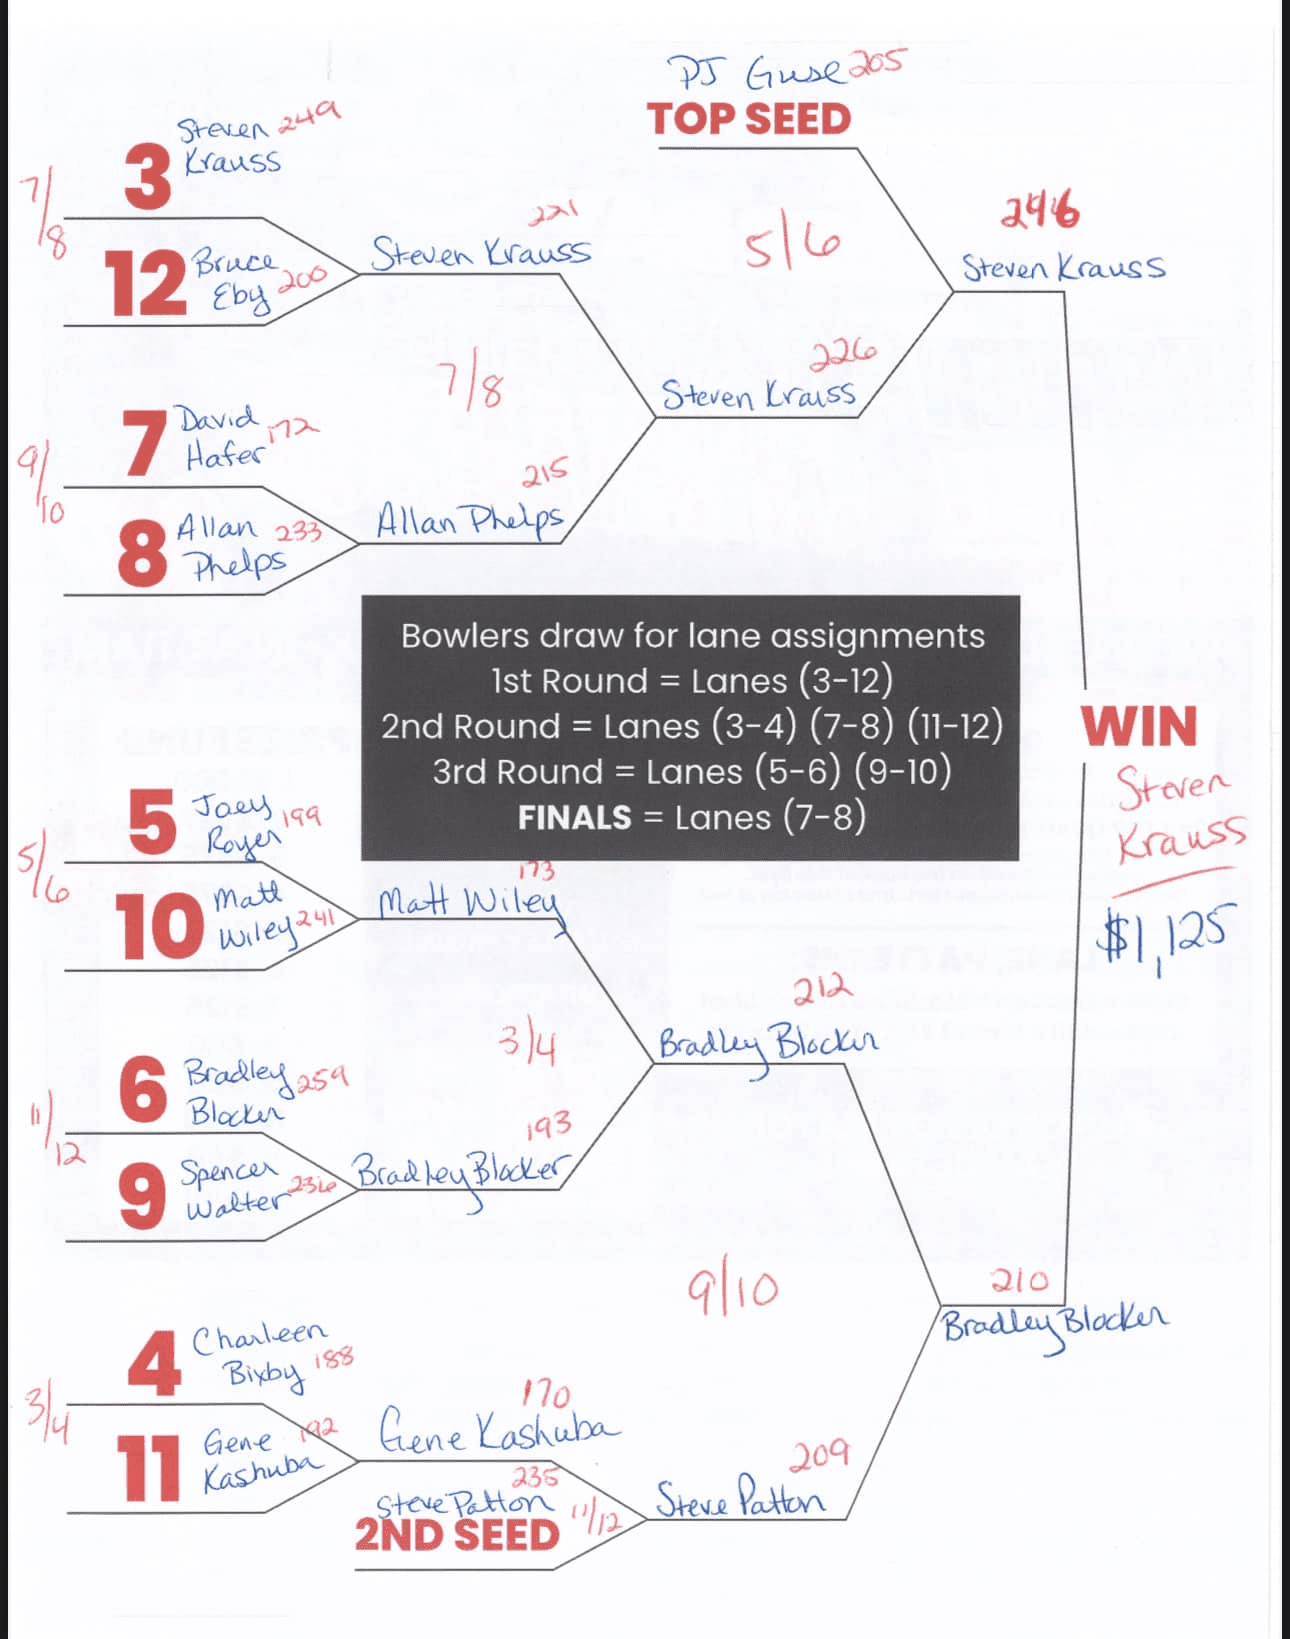 PJ Guse 205
TOP SEED
Steven 249
3 Krauss
7/8
12 Bruce
Eby 200
221
Steven Krauss
5/6
246
Steven Krauss
7/8
226
Steven Krauss
7 David
Hafer 172
9/10
8 Allan 233
Phelps
215
Allan Phelps
Bowlers draw for lane assignments
1st Round = Lanes (3-12)
2nd Round = Lanes (3-4) (7-8) (11-12)
3rd Round = Lanes (5-6) (9-10)
FINALS = Lanes (7-8)
WIN
Steven
Krauss
$1,125
5 Joey 199
Royer
5/6
10 Matt
Wiley 241
173
Matt Wiley
3/4
212
Bradley Blocker
6 Bradley 259
Blocker
11/12
9 Spencer
Walter 236
193
Bradley Blocker
9/10
210
Bradley Blocker
4 Charleen
Bixby 188
3/4
11 Gene 192
Kashuba
170
Gene Kashuba
235
Steve Patton
2ND SEED
11/12
209
Steve Patton